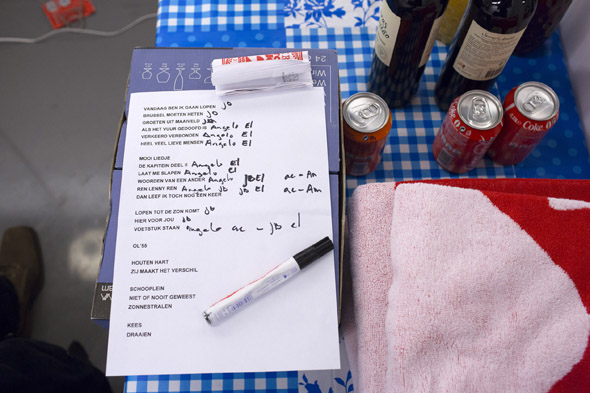 24
Wi
VANDAAG BEN IK GAAN LOPEN jb
BRUSSEL MOETEN HETEN jb
GROETEN UIT MAAIVELD jb
ALS HET VUUR GEDOOFD IS Angelo El
VERKEERD VERBONDEN Angelo El
HEEL VEEL LIEVE MENSEN Angelo El
MOOI LIEDJE
DE KAPITEIN DEEL II Angelo El
LAAT ME SLAPEN Angelo El
WOORDEN VAN EEN ANDER Angelo jb El ac - Am
REN LENNY REN Angelo jb jb El ac - Am
DAN LEEF IK TOCH NOG EEN KEER
LOPEN TOT DE ZON KOMT jb
HIER VOOR JOU jb
VOETSTUK STAAN Angelo ac - jb el
OL'55
HOUTEN HART
ZIJ MAAKT HET VERSCHIL
SCHOOLPLEIN
NIET OF NOOIT GEWEEST
ZONNESTRALEN
KEES
DRAAIEN
Coke